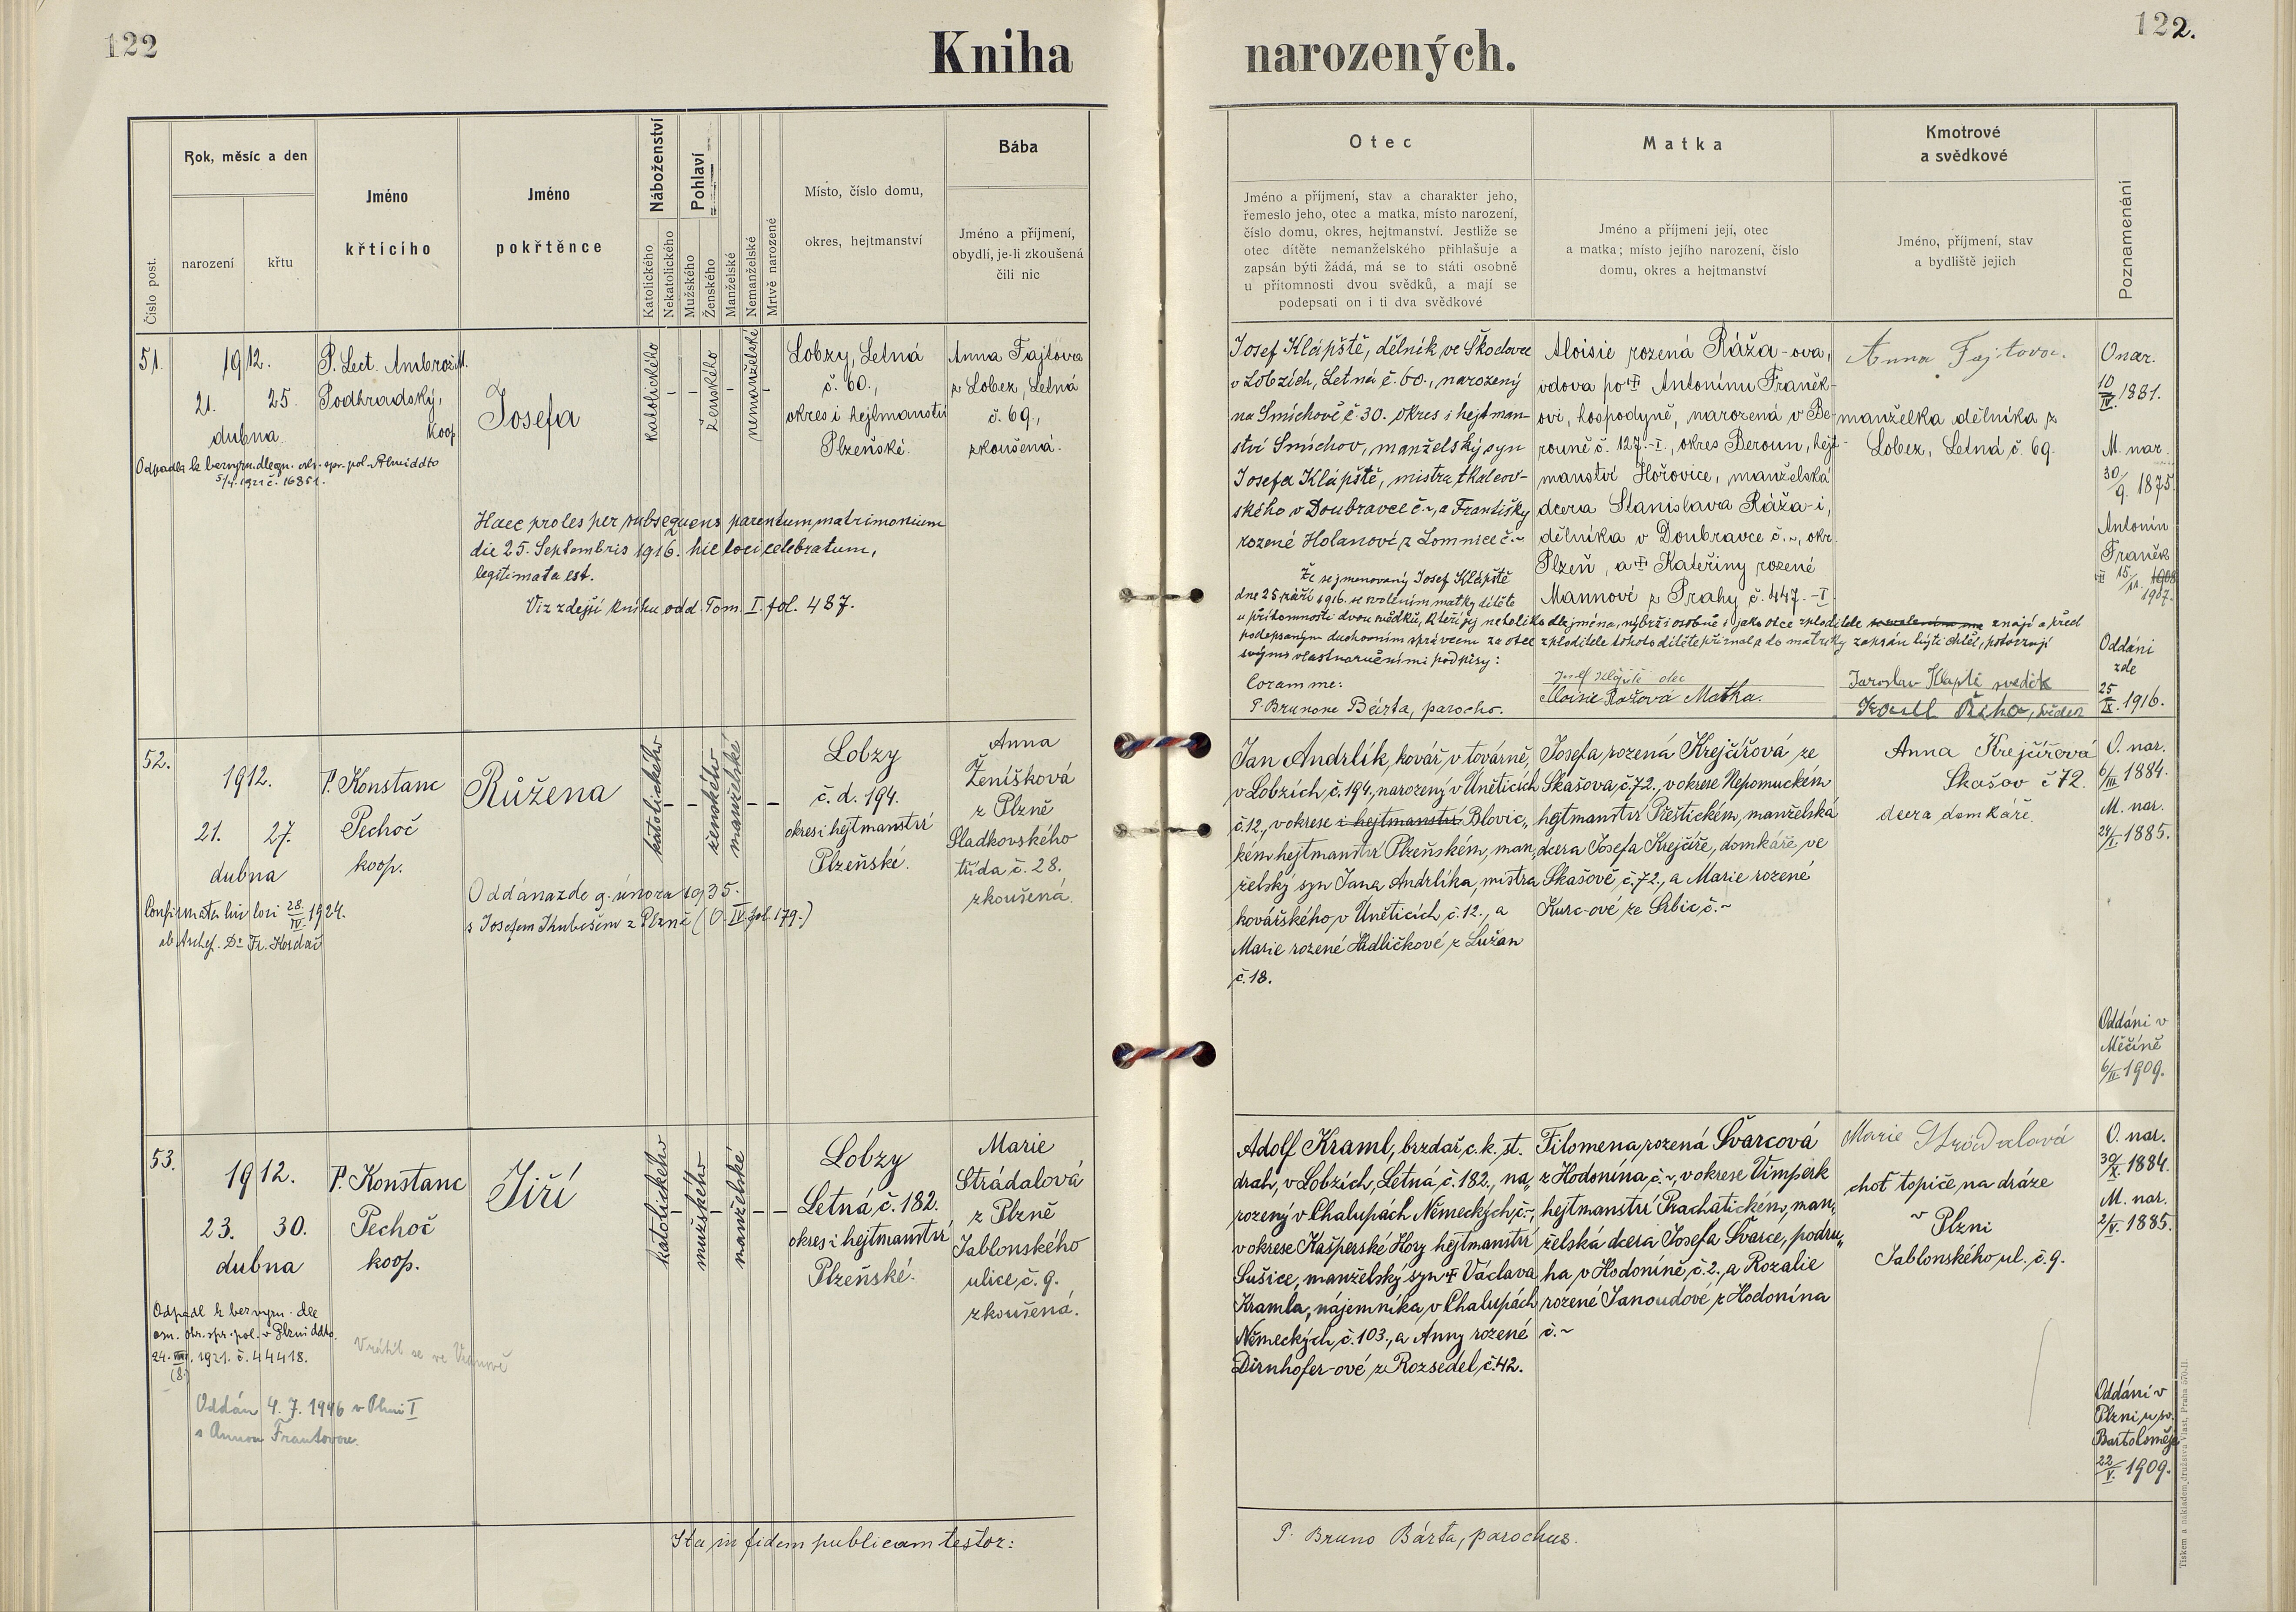 122
Kniha
narozených.
122.
Číslo post.
Rok, měsíc a den
narození
křtu
Jméno
křticího
Jméno
pokřtěnce
Náboženství
Katolického
Nekatolického
Pohlaví
Mužského
Ženského
Manželské
Nemanželské
Mrtvě narozené
Místo, číslo domu,
okres, hejtmanství
Bába
Jméno a příjmení,
obydlí, je-li zkoušená
čili nic
Otec
Jméno a příjmení, stav a charakter jeho,
řemeslo jeho, otec a matka, místo narození,
číslo domu, okres, hejtmanství. Jestliže se
otec dítěte nemanželského přihlašuje a
zapsán býti žádá, má se to státi osobně
u přítomnosti dvou svědků, a mají se
podepsati on i ti dva svědkové
Matka
Jméno a příjmení její, otec
a matka; místo jejího narození, číslo
domu, okres a hejtmanství
Kmotrové
a svědkové
Jméno, příjmení, stav
a bydliště jejich
Poznamenání
51.
1912.
21. 25.
dubna.
Odpadla k bezvyzn. dle
5/4. 1921 č. 16851.
P. Lect. Ambrož M.
Podhradský,
koop.
Josefa
katolického
-
-
ženského
-
nemanželské
-
Lobzy, Letná
č. 60.,
okres i hejtmanství
Plzeňské.
Anna Fajtova
z Lobez, Letná
č. 69.,
zkoušená.
Haec proles per subsequens parentum matrimonium
die 25. Septembris 1916. hic loci celebratum,
legitimata est.
Viz zdejší knihu odd. Tom. I. fol. 487.
Josef Klápště, dělník ve Škodovce
v Lobzích, Letná č. 60., narozený
na Smíchově č. 30. okres i hejtman-
ství Smíchov, manželský syn
Josefa Klápště, mistra tkalcov-
ského v Doubravce č. ~, a Františky
rozené Holanové z Lomnice č. ~
Že se jmenovaný Josef Klápště
dne 25 září 1916. se svolením matky dítěte
u přítomnosti dvou svědků, kteří jej netoliko dle jména, nýbrž i osobně i jako otce zploditele znají a před
podepsaným duchovním správcem za otce zploditele tohoto dítěte přiznal a do matriky zapsán býti chtěl, potvrzují
svými vlastnoručními podpisy:
Coram me:
P. Brunone Bárta, parocho.
Aloisie rozená Ráža-ova,
vdova po † Antonínu Franěk-
ovi, hospodyně, narozená v Be-
rouně č. 127.-I., okres Beroun, hejt-
manství Hořovice, manželská
dcera Stanislava Ráža-i,
dělníka v Doubravce č. ~, okr.
Plzeň, a † Kateřiny rozené
Mannové z Prahy č. 447.-I
Josef Klápště otec
Aloisie Rážová Matka.
Anna Fajtova.
manželka dělníka z
Lobez, Letná č. 69.
Jaroslav Klapště svědek
Karel Říha, svědek
O nar.
10/IV. 1881.
M. nar.
30/9. 1875.
Antonín
Franěk
† 15./11. 1908
1907.
Oddáni
zde
25/IX. 1916.
52.
1912.
21. 27.
dubna
Confirmata hic loci 28/IV. 1924.
ab Archep. Dr Fr. Kordač
P. Konstanc
Pechoč
koop.
Růžena
katolického
-
-
ženského
manželské
-
-
Lobzy
č. d. 194.
okres i hejtmanství
Plzeňské.
Anna
Ženíšková
z Plzně
Sladkovského
třída č. 28.
zkoušená.
Oddána zde 9. února 1935.
s Josefem Kubešem z Plzně (O. IV. fol. 179.)
Jan Andrlík, kovář v továrně,
v Lobzích č. 194., narozený v Úněticích
č. 12., v okrese i hejtmanství Blovic„
kém hejtmanství Plzeňském, man„
želský syn Jana Andrlíka, mistra
kovářského v Úněticích č. 12., a
Marie rozené Hrdličkové z Lužan
č. 18.
Josefa rozená Krejčířová ze
Skašova č. 72., v okrese Nepomuckém
hejtmanství Přeštickém, manželská
dcera Josefa Krejčíře, domkáře ve
Skašově č. 72., a Marie rozené
Kurc-ové ze Srbic č. ~
Anna Krejčířová
Skašov č 72.
dcera domkáře.
O. nar.
6/III. 1884.
M. nar.
24/I. 1885.
Oddáni v
Měčíně
6/II. 1909.
53.
1912.
23. 30.
dubna
Odpadl k bezvyzn. dle
ozn. okr. spr. pol. v Plzni ddto.
24. VIII. 1921. č. 44418.
(8.)
Vrátil se ve
Oddán 4. 7. 1946 v Plzni I
s Annou Frantovou.
P. Konstanc
Pechoč
koop.
Jiří
katolického
-
mužského
-
manželské
-
-
Lobzy
Letná č. 182.
okres i hejtmanství
Plzeňské.
Marie
Strádalová
z Plzně
Jablonského
ulice č. 9.
zkoušená.
Adolf Kraml, brzdař c. k. st.
drah, v Lobzích, Letná č. 182., na„
rozený v Chalupách Německých č. ~,
v okrese Kašperské Hory hejtmanství
Sušice, manželský syn † Václava
Kramla, nájemníka v Chalupách
Německých č. 103., a Anny rozené
Dirnhofer-ové z Rozsedel č. 42.
Filomena rozená Švarcová
z Hodonína č. ~, v okrese Vimperk
hejtmanství Prachatickém, man„
želská dcera Josefa Švarce, podru„
ha v Hodoníně č. 2., a Rozalie
rozené Janoudové z Hodonína
č. ~
Marie Strádalová
choť topiče na dráze
v Plzni
Jablonského ul. č. 9.
O. nar.
30/X. 1884.
M. nar.
2/V. 1885.
Oddáni v
Plzni u sv.
Bartoloměje
22/V. 1909.
Ita in fidem publicam testor:
P. Bruno Bárta, parochus.
Tiskem a nákladem družstva Vlast, Praha 570-II.